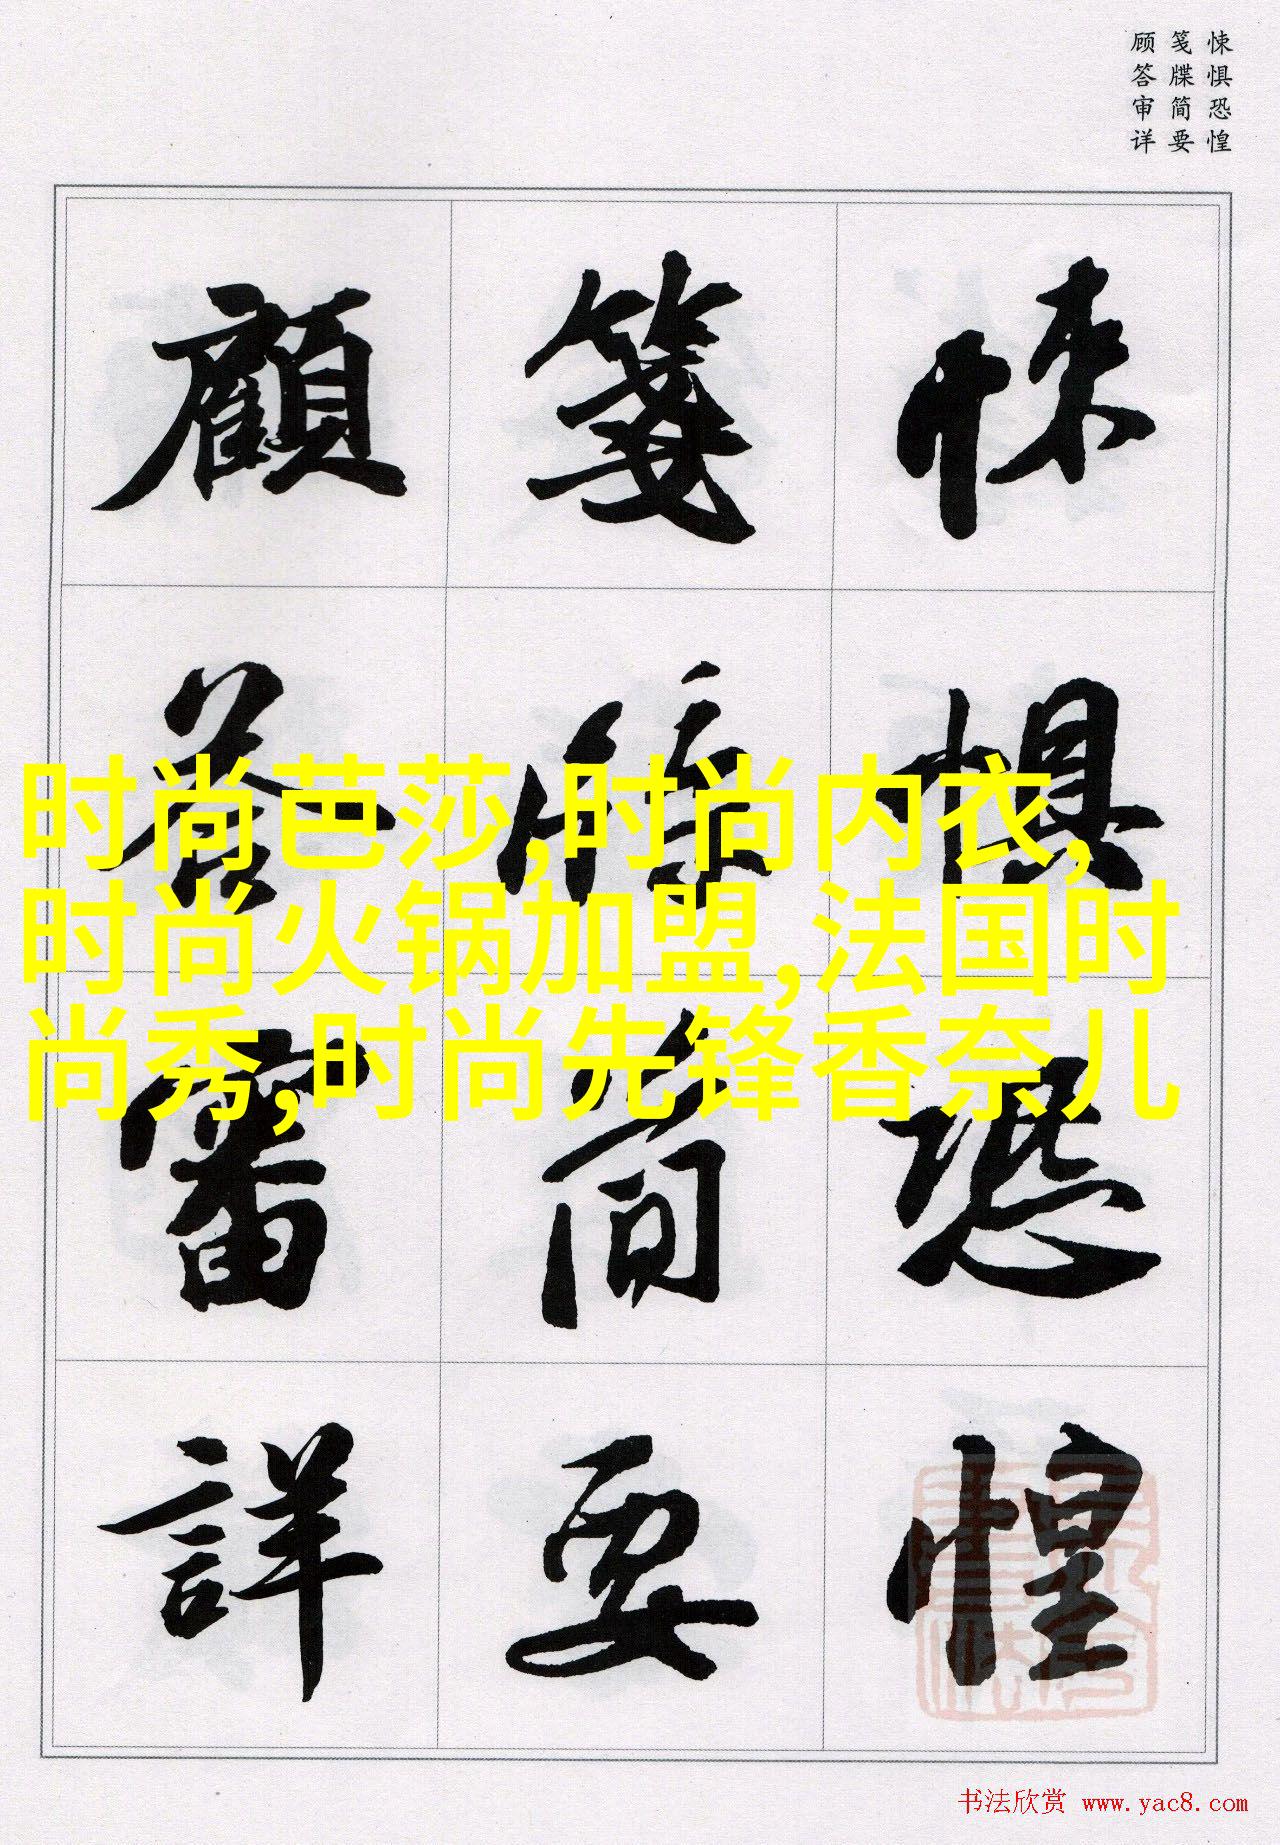 悚惧恐惶
笺牒简要
顾答审详
悚懼恐惶
箋牒簡要
顧答審詳
时尚芭莎,时尚内衣,
时尚火锅加盟,法国时
尚秀,时尚先锋香奈儿
书法欣赏 www.yac8.com